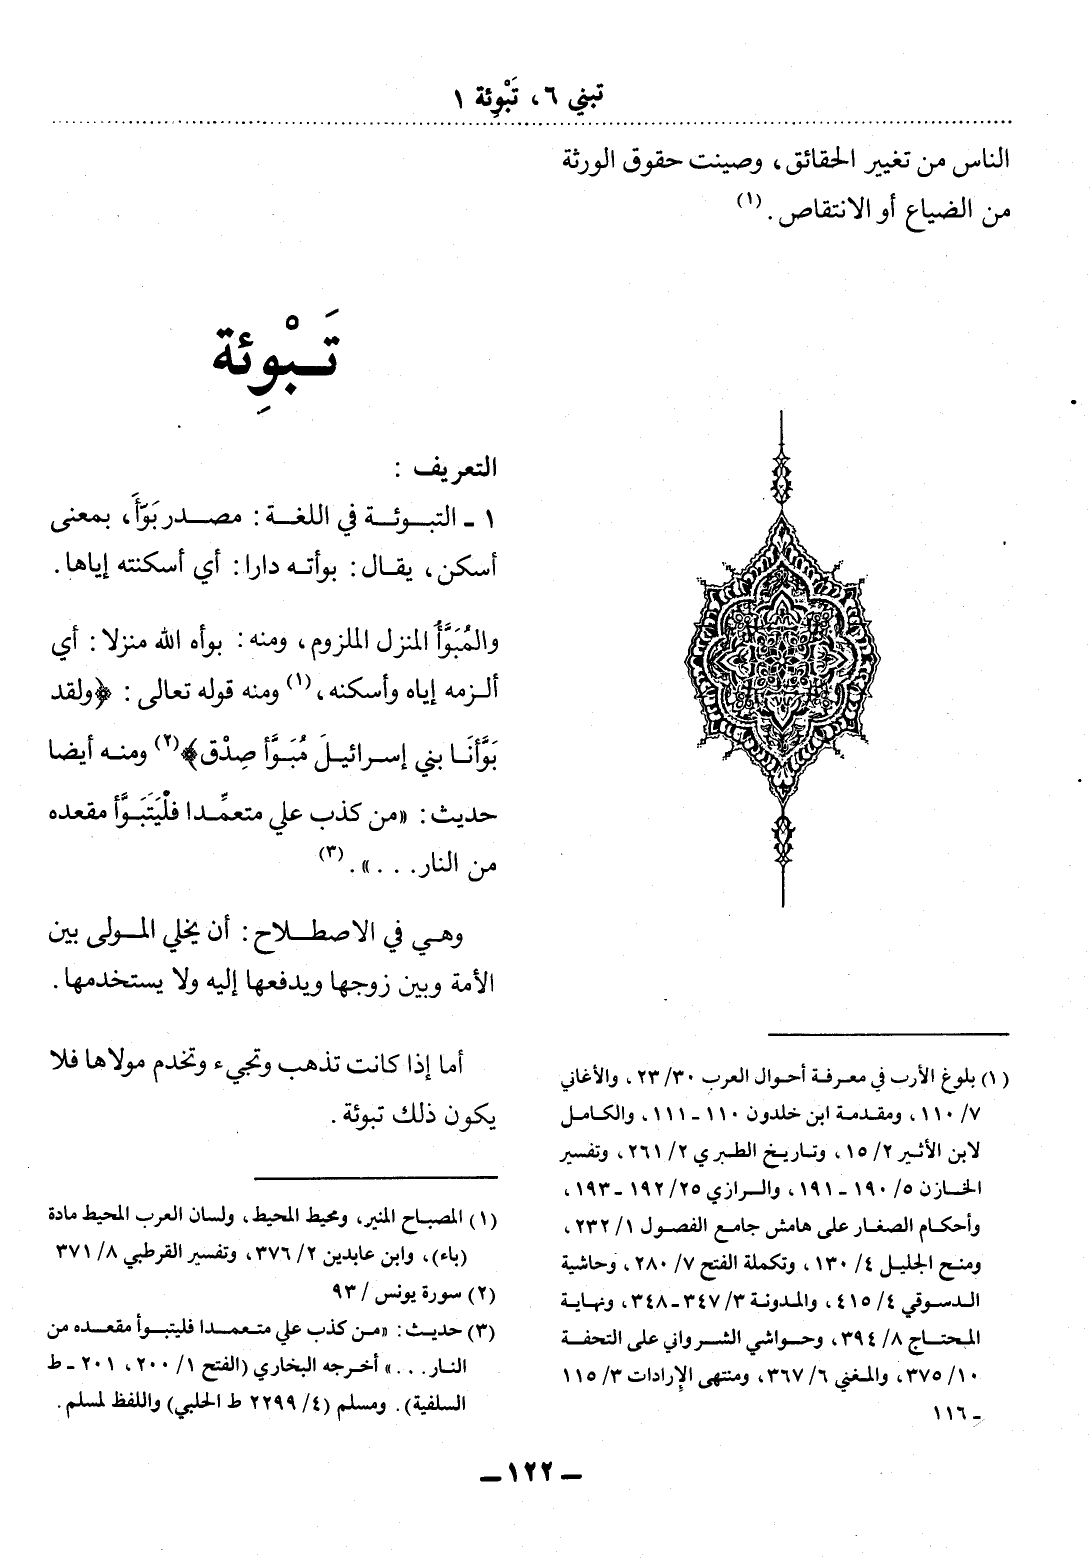 تبني ٦، تَبْوِئة ١
الناس من تغيير الحقائق، وصينت حقوق الورثة
من الضياع أو الانتقاص.(١)
(١) بلوغ الأرب في معرفة أحوال العرب ٣٠/ ٢٣، والأغاني
٧/ ١١٠، ومقدمة ابن خلدون ١١٠ ـ ١١١، والكامل
لابن الأثير ٢/ ١٥، وتاريخ الطبري ٢/ ٢٦١، وتفسير
الخازن ٥/ ١٩٠ ـ ١٩١، والرازي ٢٥/ ١٩٢ ـ ١٩٣،
وأحكام الصغار على هامش جامع الفصول ١/ ٢٣٢،
ومنح الجليل ٤/ ١٣٠، وتكملة الفتح ٧/ ٢٨٠، وحاشية
الدسوقي ٤/ ٤١٥، والمدونة ٣/ ٣٤٧ ـ ٣٤٨، ونهاية
المحتاج ٨/ ٣٩٤، وحواشي الشرواني على التحفة
١٠/ ٣٧٥، والمغني ٦/ ٣٦٧، ومنتهى الإرادات ٣/ ١١٥
ـ ١١٦
تَبْوِئة
التعريف :
١ ـ التبوئة في اللغة: مصدر بَوَّأَ، بمعنى
أسكن، يقال: بوأته دارا: أي أسكنته إياها.
والمُبَوَّأُ المنزل الملزوم، ومنه: بوأه الله منزلا: أي
ألزمه إياه وأسكنه،(١) ومنه قوله تعالى: ﴿ولقد
بَوَّأنَا بني إسرائيلَ مُبَوَّأ صِدْق﴾(٢) ومنه أيضا
حديث: «من كذب علي متعمِّدا فلْيَتَبَوَّأ مقعده
من النار. . .».(٣)
وهي في الاصطلاح: أن يخلي المولى بين
الأمة وبين زوجها ويدفعها إليه ولا يستخدمها.
أما إذا كانت تذهب وتجيء وتخدم مولاها فلا
يكون ذلك تبوئة.
(١) المصباح المنير، ومحيط المحيط، ولسان العرب المحيط مادة
(باء)، وابن عابدين ٢/ ٣٧٦، وتفسير القرطبي ٨/ ٣٧١
(٢) سورة يونس / ٩٣
(٣) حديث: «من كذب علي متعمدا فليتبوأ مقعده من
النار. . .» أخرجه البخاري (الفتح ١/ ٢٠٠، ٢٠١ ـ ط
السلفية). ومسلم (٤/ ٢٢٩٩ ط الحلبي) واللفظ لمسلم.
ـ ١٢٢ ـ